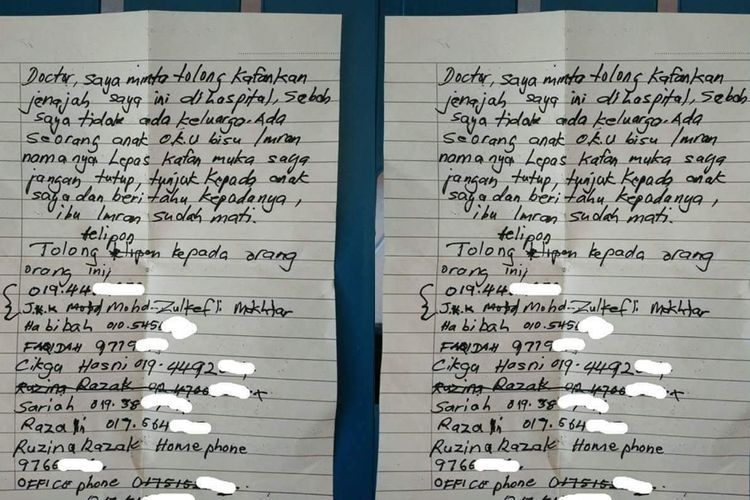 Doctor, saya minta tolong Kafankan
jenajah saya ini di hospital, Sebab
saya tidak ada keluarga. Ada
seorang anak O.K.U bisu Imran
namanya Lepas Kafan muka saya
jangan tutup, tunjuk kepada anak
saya dan beri tahu kepadanya,
ibu Imran sudah mati.
telipon
Tolong telipon kepada orang
orang ini,
019.44
J.K.K Mohd Mohd-Zulkefli Mokhtar
Habibah 010.5456
FARIDAH 9779
Cikgu Hasni 019.4492
Ruzina Razak
Sariah 019.38
Razali 017.564
Ruzina Razak Home phone
9766
OFFICE phone 017515
Doctor, saya minta tolong Kafankan
jenajah saya ini di hospital, Sebab
saya tidak ada keluarga. Ada
seorang anak O.K.U bisu Imran
namanya Lepas Kafan muka saya
jangan tutup, tunjuk kepada anak
saya dan beri tahu kepadanya,
ibu Imran sudah mati.
telipon
Tolong telipon kepada orang
orang ini,
019.44
J.K.K Mohd Mohd-Zulkefli Mokhtar
Habibah 010.5456
FARIDAH 9779
Cikgu Hasni 019.4492
Ruzina Razak
Sariah 019.38
Razali 017.564
Ruzina Razak Home phone
9766
OFFICE phone 017515